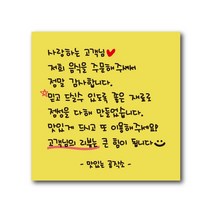 사랑하는 고객님
저희 음식을 주문해주셔서
정말 감사합니다.
믿고 드실수 있도록 좋은 재료로
정성을 다해 만들었습니다.
맛있게 드시고 또 이용해주세요!
고객님의 리뷰는 큰 힘이 됩니다
- 맛있는 곱작소 -